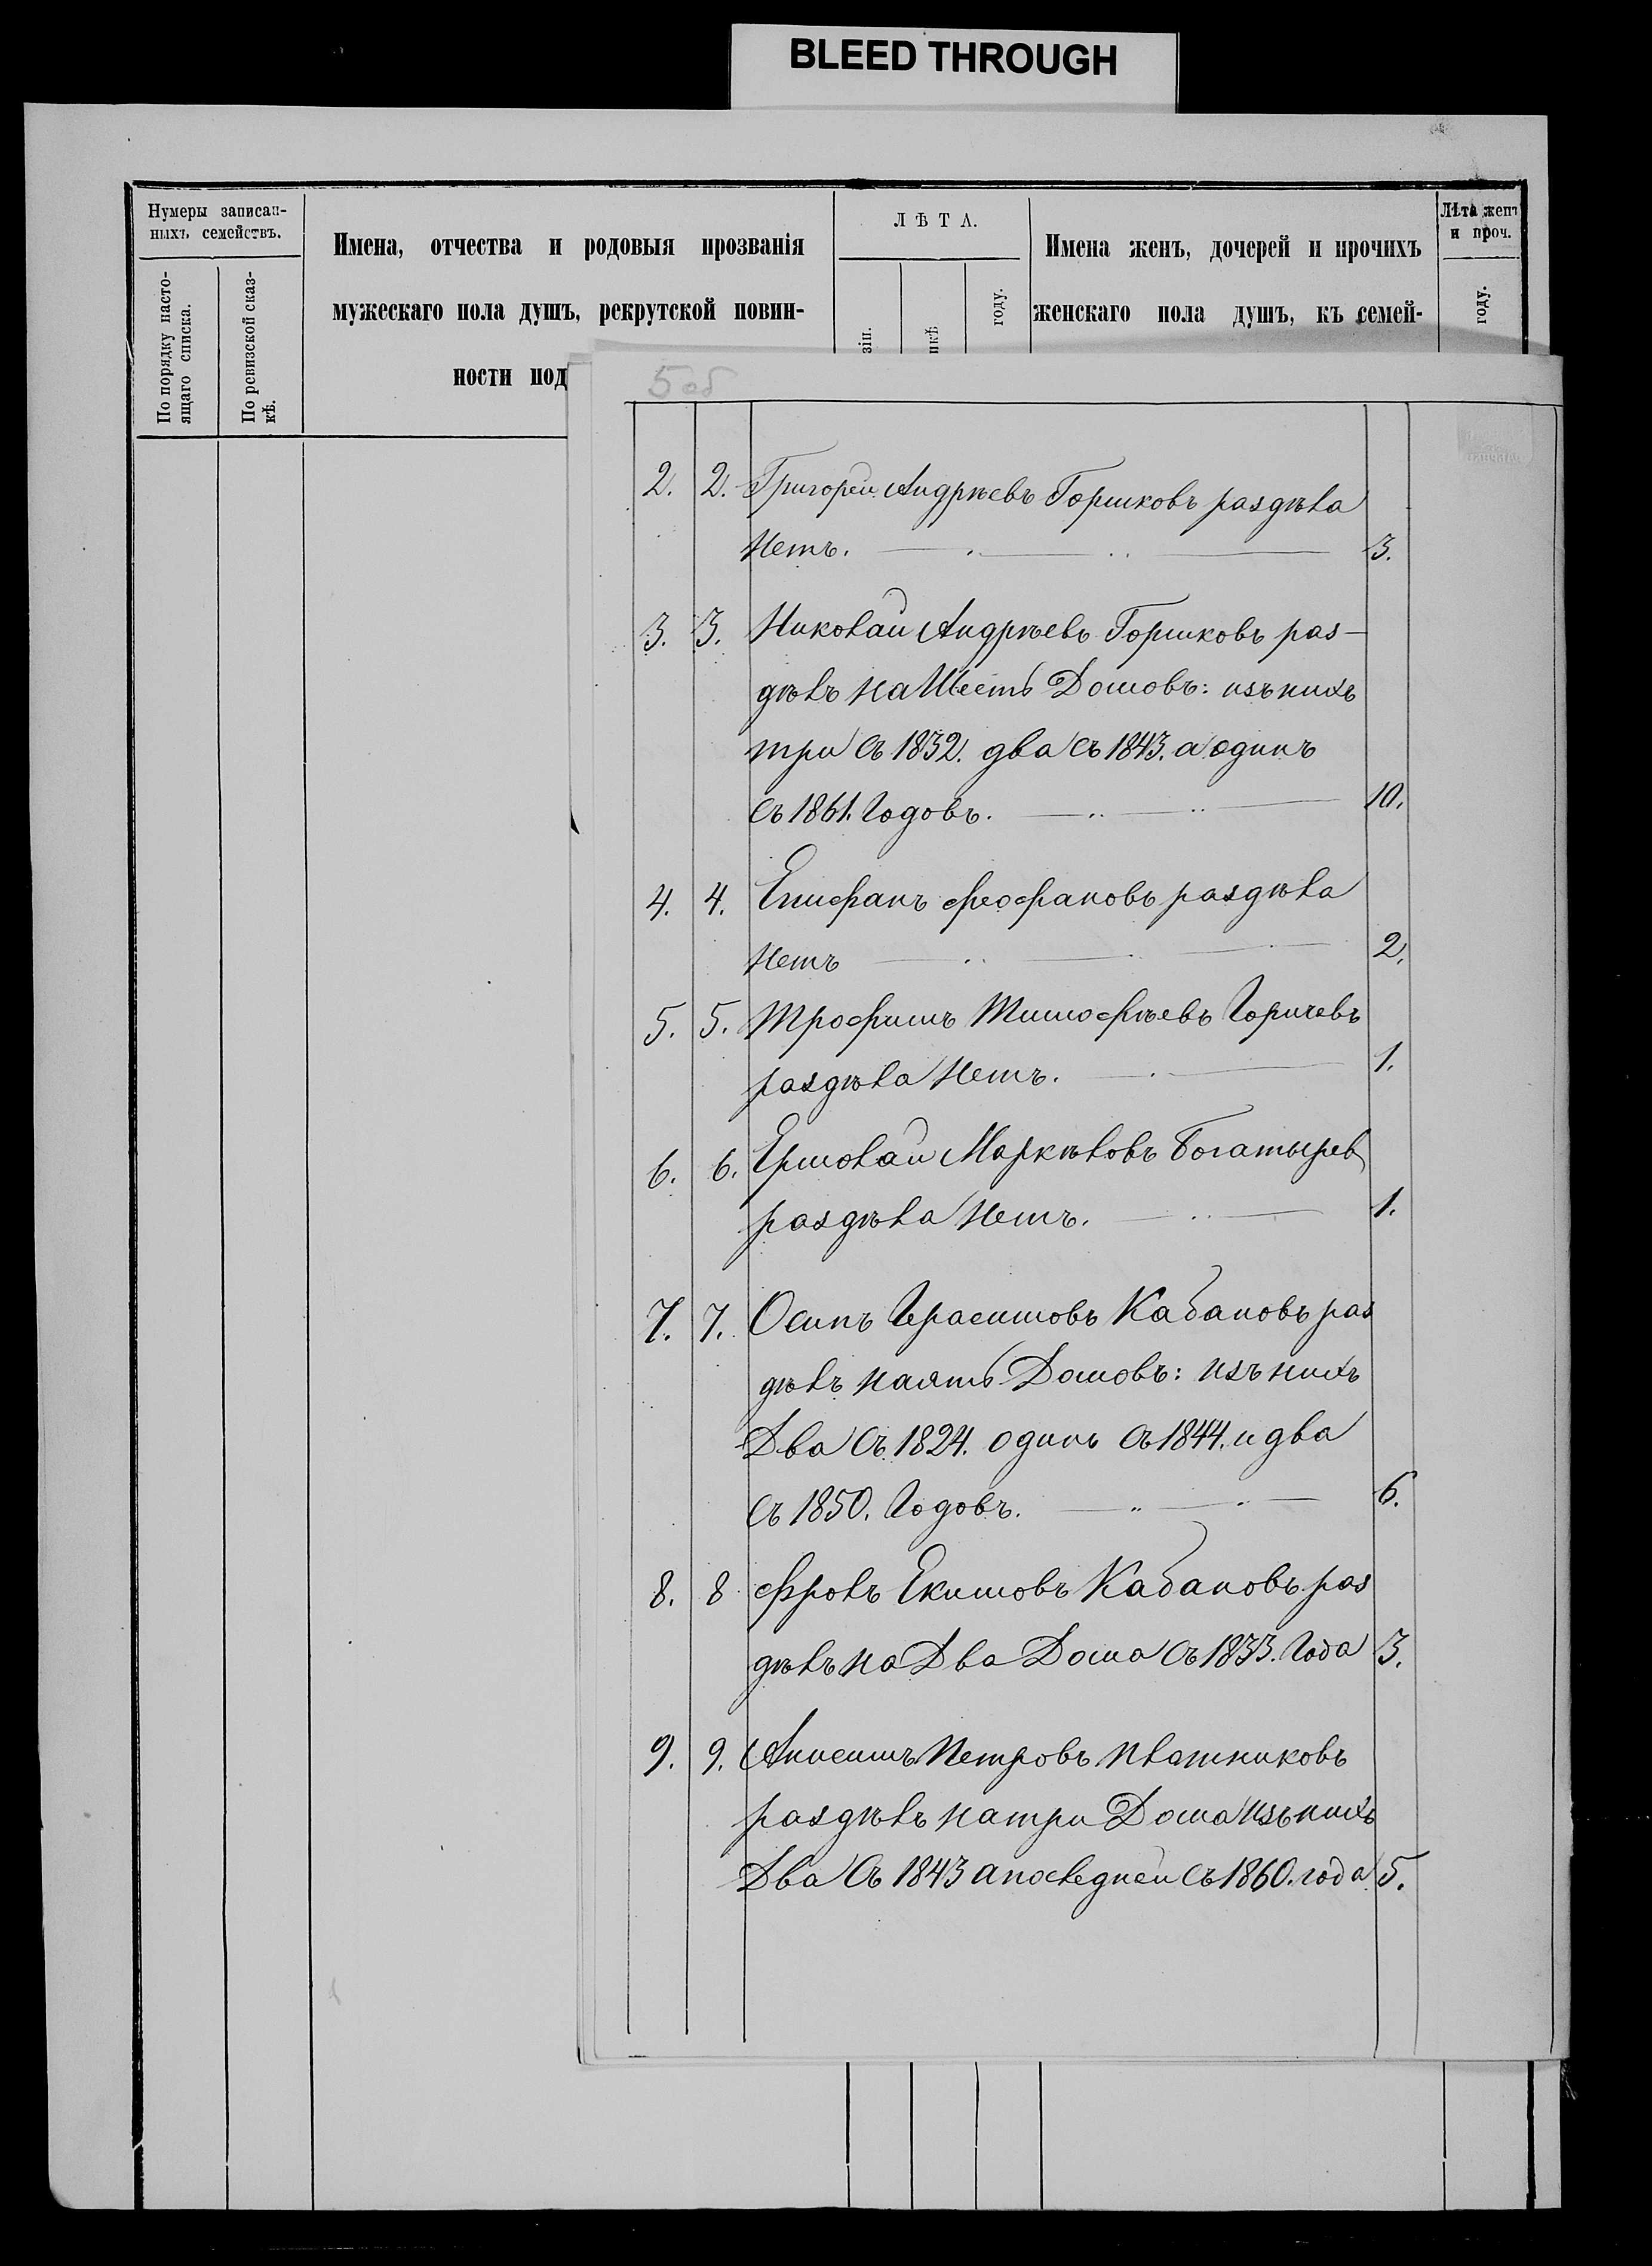 BLEED THROUGH
Нумеры записан-
ныхъ семействъ.
По порядку насто-
ящаго списка.
По ревизской сказ-
кѣ.
Имена, отчества и родовыя прозванія
мужескаго пола душъ, рекрутской повин-
ности под
ЛѢТА.
зіи.
пкѣ
году.
Имена женъ, дочерей и прочихъ
женскаго пола душъ, къ семей-
Лѣта женъ
и проч.
году.
5 об
2. 2. Григореи Андрѣевъ Горшковъ раздѣла
Нетъ. 3.
3. 3. Николаи Андрѣевъ Горшковъ раз-
дѣлъ на Шесть Домовъ: изъ нихъ
три съ 1832. два съ 1843. а одинъ
съ 1861. Годовъ. 10.
4. 4. Епифанъ Феофановъ раздѣла
Нетъ 2.
5. 5. Трофимъ Тимофѣевъ Горичевъ
раздѣла Нетъ. 1.
6. 6. Ермолаи Маркѣловъ Богатырев
раздѣла Нетъ. 1.
7. 7. Осипъ Герасимовъ Кабановъ раз
дѣлъ на пять Домовъ: изъ нихъ
Два Съ 1824. одинъ съ 1844. и два
съ 1850. Годовъ. 6.
8. 8 Фролъ Екимовъ Кабановъ раз
дѣлъ на Два Дома съ 1833. Года 3.
9. 9. Анисимъ Петровъ Плотниковъ
раздѣлъ на три Дома изъ нихъ
Два Съ 1843 а последнеи съ 1860. года 5.